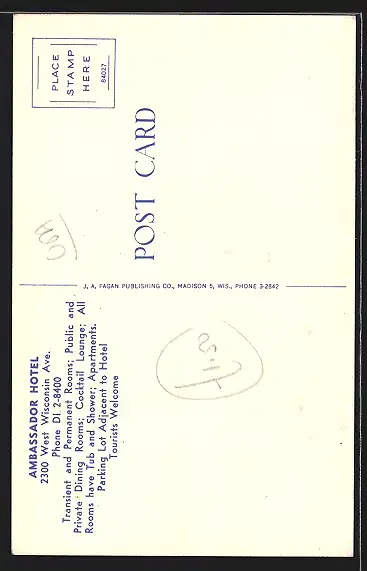 AMBASSADOR HOTEL
2300 West Wisconsin Ave.
Phone DI. 2-8400
Transient and Permanent Rooms; Public and
Private Dining Rooms; Cocktail Lounge; All
Rooms have Tub and Shower; Apartments.
Parking Lot Adjacent to Hotel
Tourists Welcome
J. A. FAGAN PUBLISHING CO., MADISON 5, WIS., PHONE 3-2842
POST CARD
PLACE
STAMP
HERE
84027